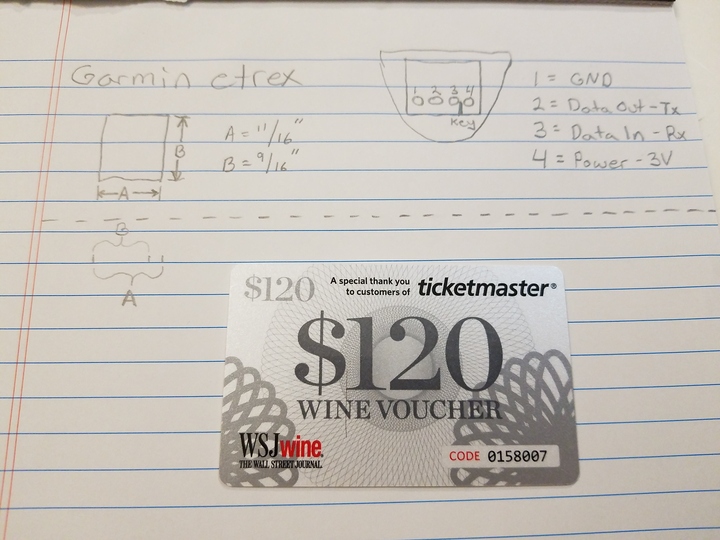 Garmin etrex
A = 11/16"
B = 9/16"
B
A
1 2 3 4
Key
1 = GND
2 = Data Out - Tx
3 = Data In - Rx
4 = Power - 3V
B
A
$120
A special thank you
to customers of
ticketmaster®
$120
WINE VOUCHER
WSJwine.
THE WALL STREET JOURNAL
CODE 0158007